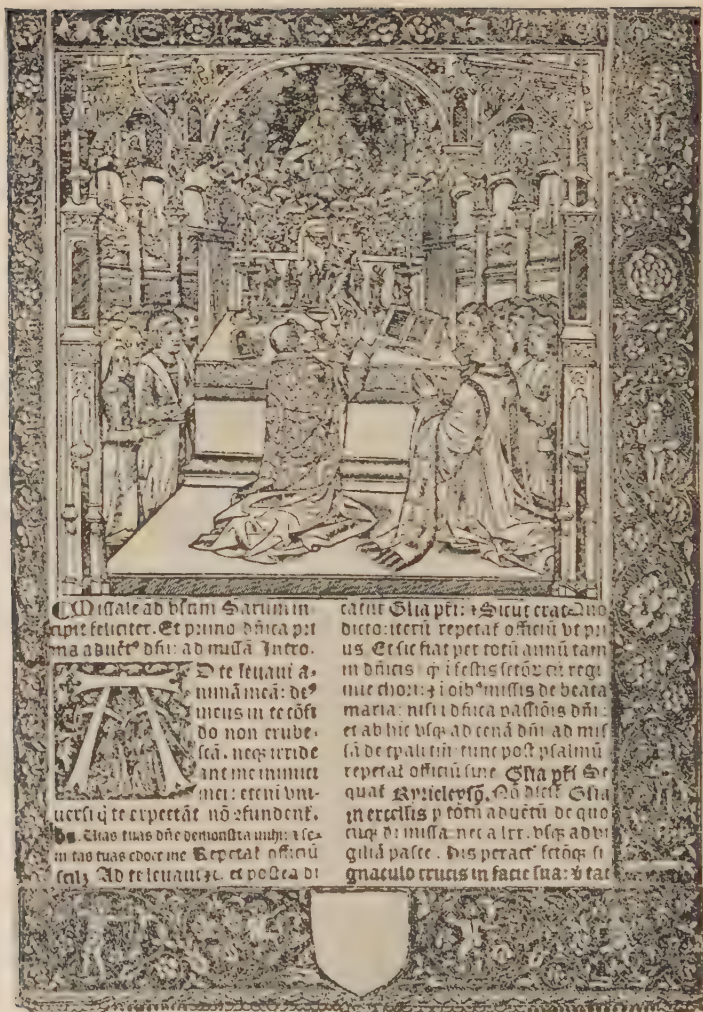 Missale ad vsum Sarum in-
cipit feliciter. Et primo dñica pri
ma aduētꝰ dñi: ad missā Intro.
AD te leuaui a-
nimā meā: deꝰ
meus in te cōfi
do non erube-
scā. neqꝫ irride
ant me inimici
mei: eteni vni-
uersi q̄ te expectāt nō ꝯfundenꝉ.
Uias tuas dñe demonstra mihi: ⁊ se-
mitas tuas edoce me Repetaꝉ officiū
scilꝫ Ad te leuaui ⁊c. et postea di
catur Glia pr̄i: ⁊ Sicut erat. Quo
dicto: iterū repetaꝉ officiū vt pri
us. Et sic fiat per totū annū tam
in dñicis q̄ ī festis sctōꝝ cū regi
mine chori: ⁊ ī oībꝰ missis de beata
maria: nisi ī dñica passiōis dñi:
et ab hic vsqꝫ ad cenā dñi ad mis
sā de tꝑali tm̄: tunc post psalmū
repetaꝉ officiū sine Glia pr̄i Se
quaꝉ Kyrieleysō. Nō dicit Glia
in excelsis ꝑ totū aduētū de quo
cūqꝫ dī missa: nec a lxx. vsqꝫ ad vi
giliā pasce. His peractꝭ sctōqꝫ si
gnaculo crucis in facie sua: